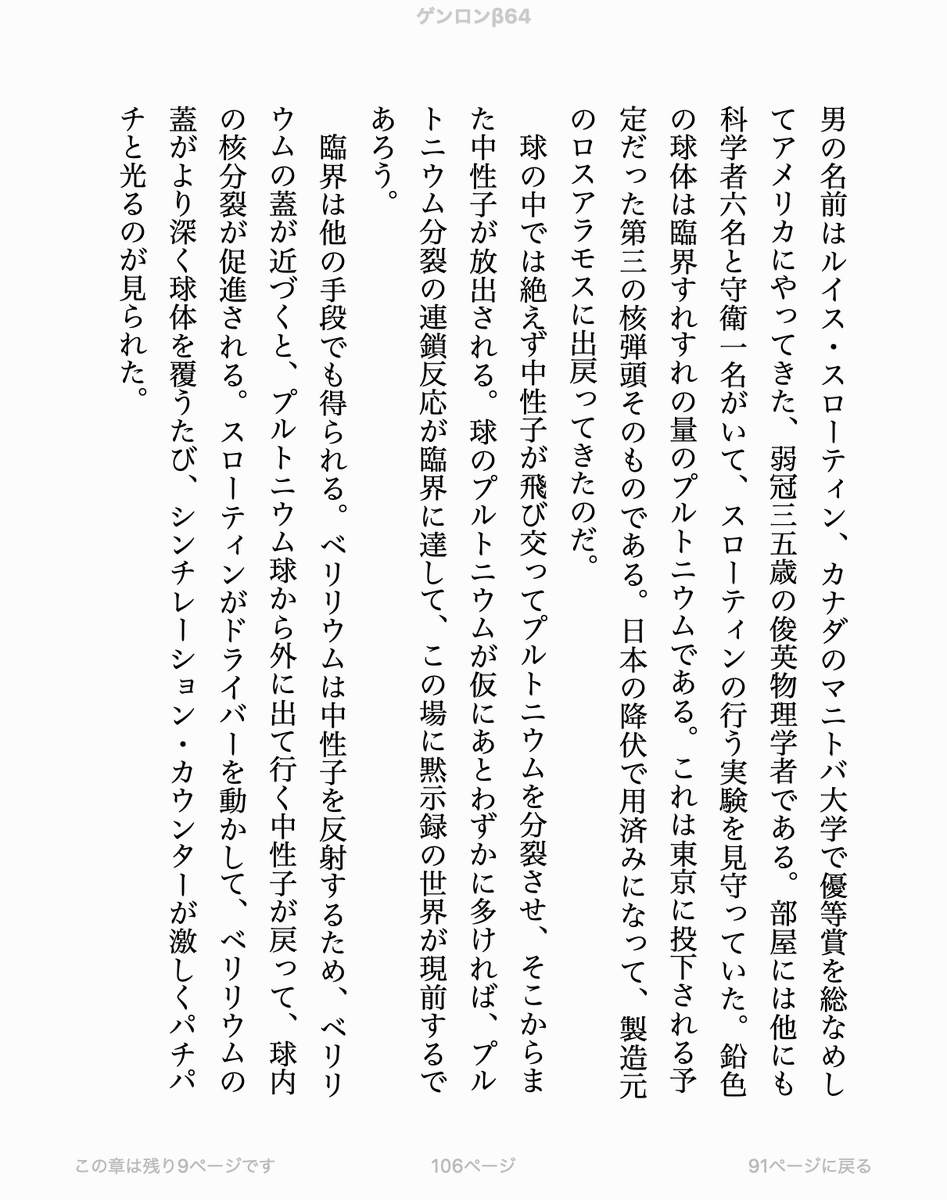 ゲンロンβ64
男の名前はルイス・スローティン、カナダのマニトバ大学で優等賞を総なめし
てアメリカにやってきた、弱冠三五歳の俊英物理学者である。部屋には他にも
科学者六名と守衛一名がいて、スローティンの行う実験を見守っていた。鉛色
の球体は臨界すれすれの量のプルトニウムである。これは東京に投下される予
定だった第三の核弾頭そのものである。日本の降伏で用済みになって、製造元
のロスアラモスに出戻ってきたのだ。
球の中では絶えず中性子が飛び交ってプルトニウムを分裂させ、そこからま
た中性子が放出される。球のプルトニウムが仮にあとわずかに多ければ、プル
トニウム分裂の連鎖反応が臨界に達して、この場に黙示録の世界が現前するで
あろう。
臨界は他の手段でも得られる。ベリリウムは中性子を反射するため、ベリリ
ウムの蓋が近づくと、プルトニウム球から外に出て行く中性子が戻って、球内
の核分裂が促進される。スローティンがドライバーを動かして、ベリリウムの
蓋がより深く球体を覆うたび、シンチレーション・カウンターが激しくパチパ
チと光るのが見られた。
この章は残り9ページです
106ページ
91ページに戻る